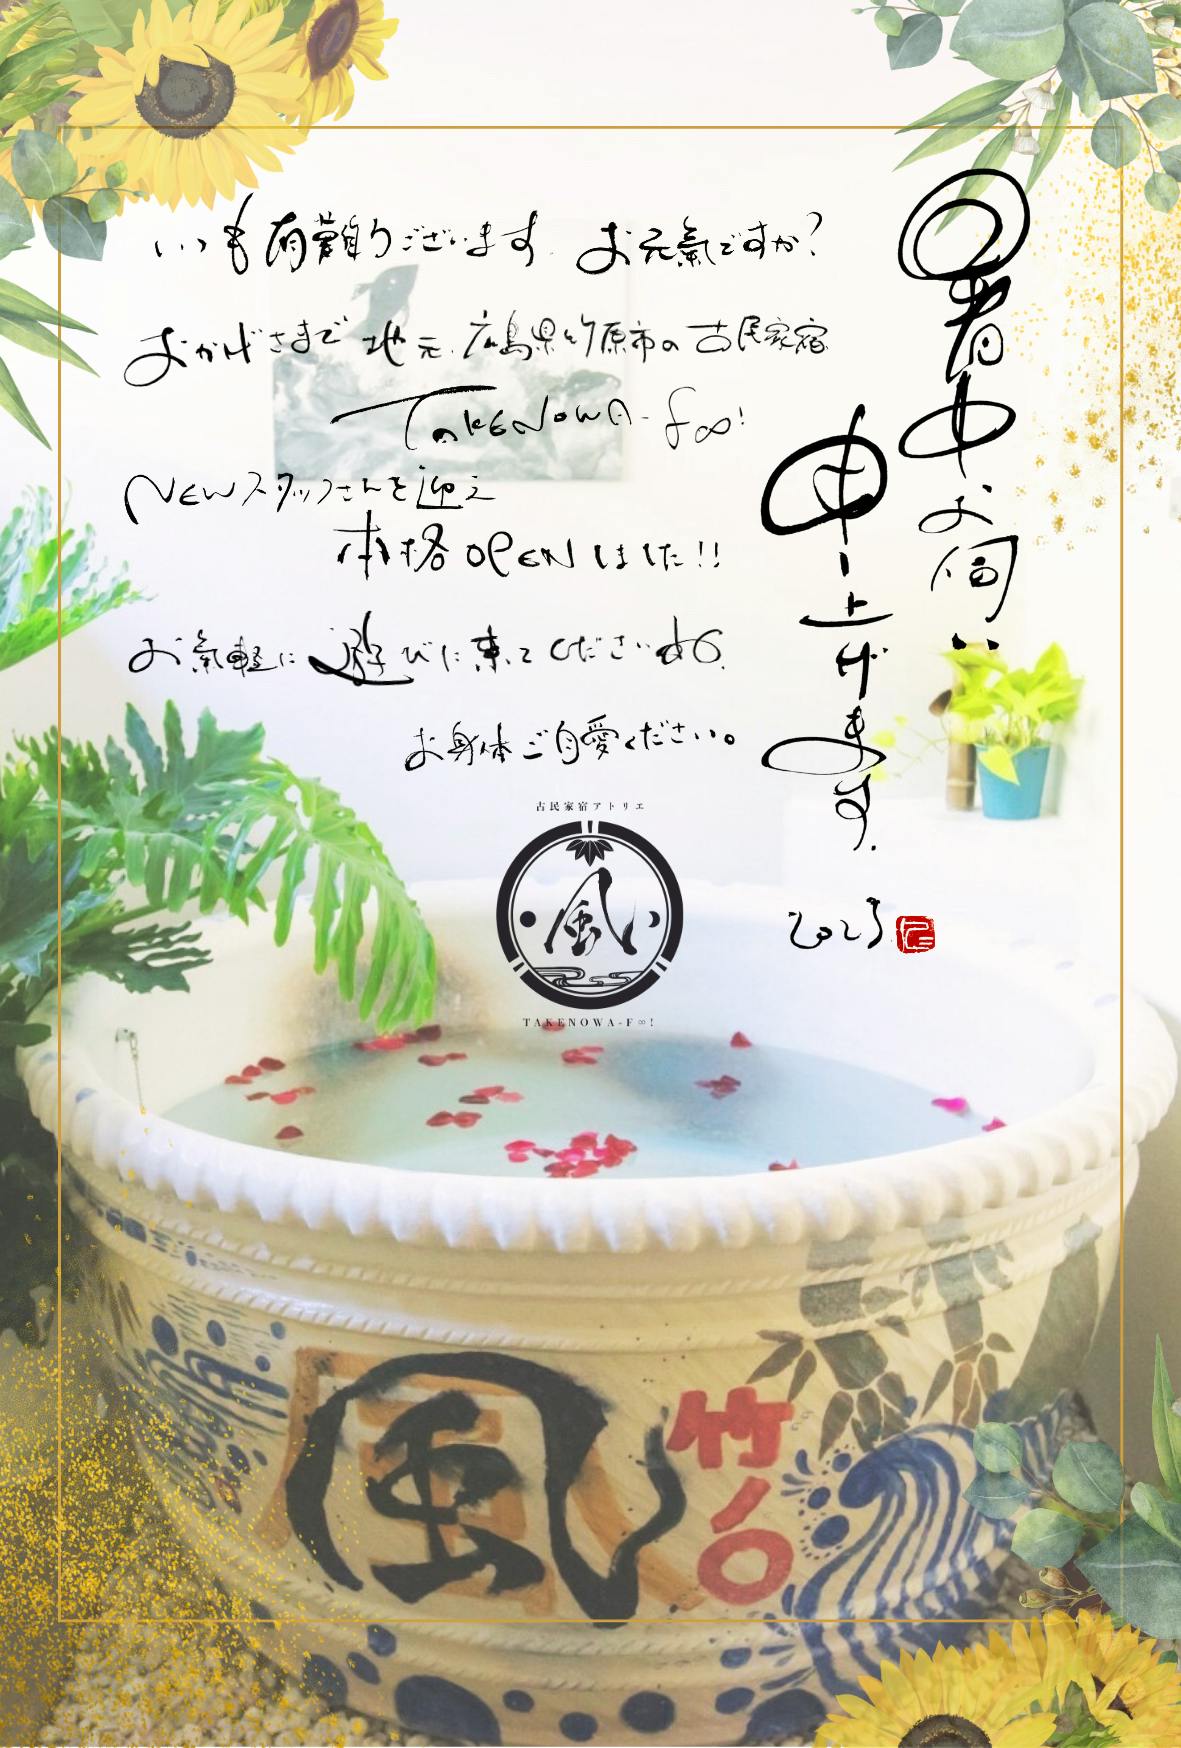 暑中お伺い
申し上げます.
2023
いつも有難うございます. お元氣ですか?
おかげさまで 地元. 広島県竹原市の 古民家宿
TAKENOWA-F∞!
NEWスタッフさんを迎え
本格OPENしました!!
お氣軽に遊びに来てくださいね.
お身体ご自愛ください。
古民家宿アトリエ
風い
TAKENOWA-F∞!
風
竹ノ〇